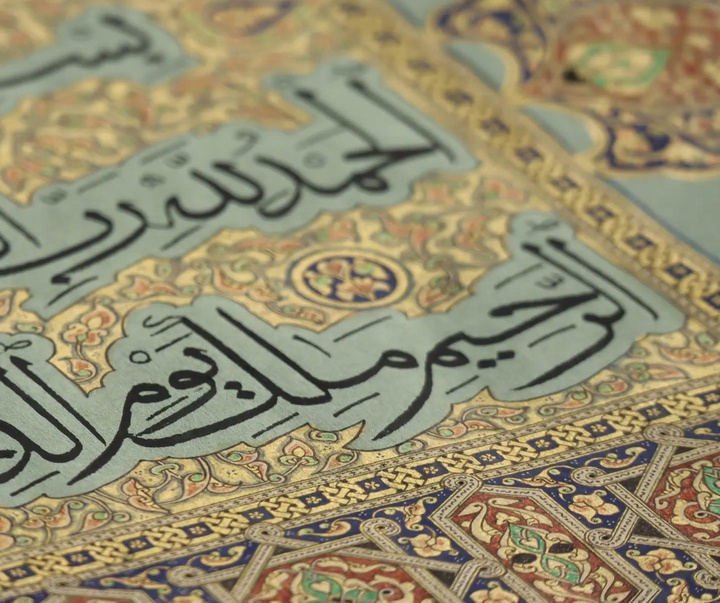 بس
الحمد لله رب ا
الرحيم ملك يوم الد